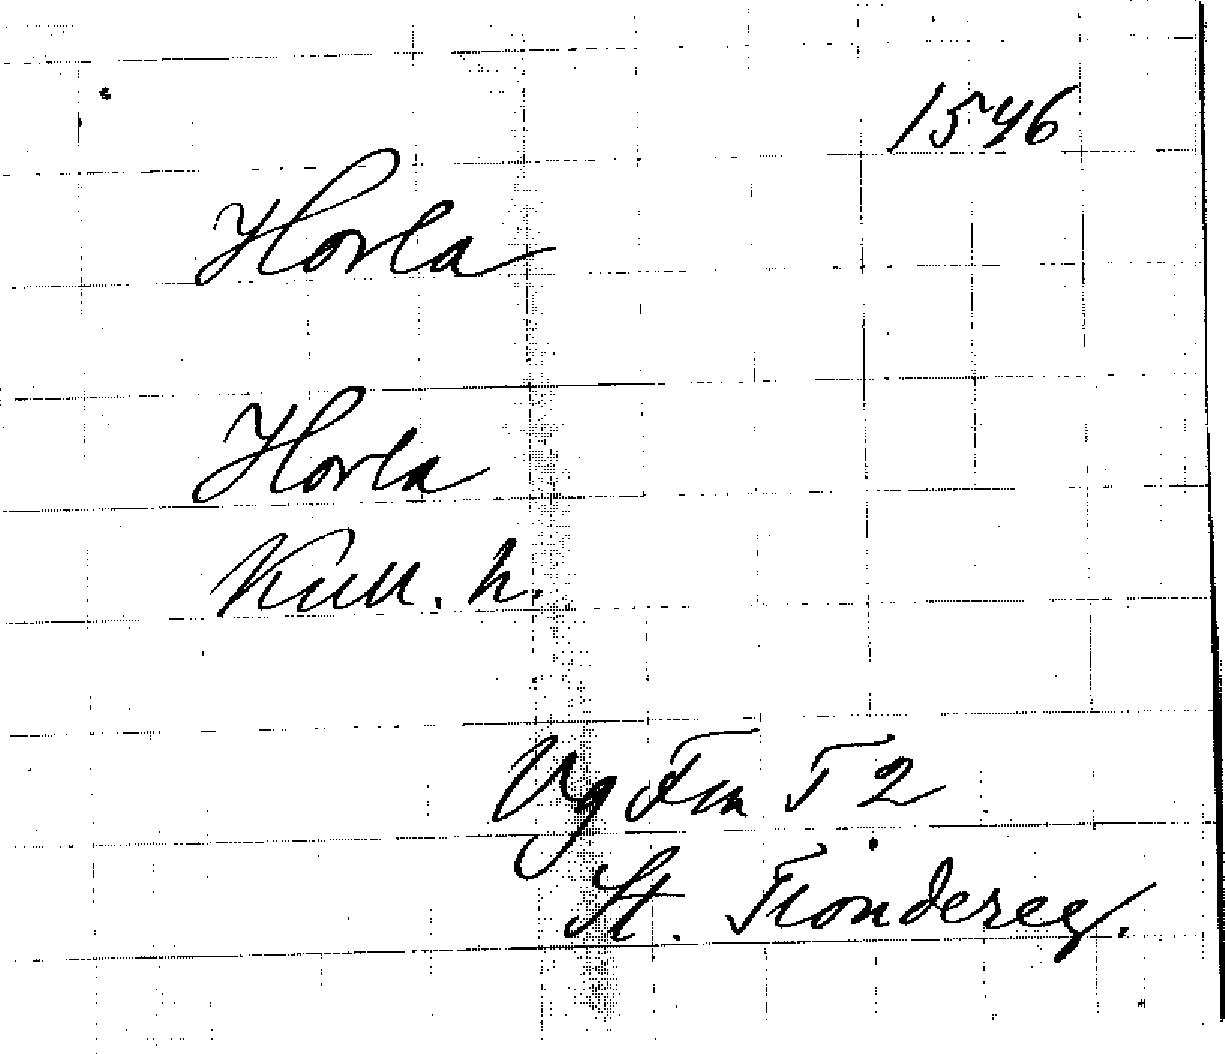 1546
Horla
Horla
Kull. h.
Vg Fra T 2
St. Tiondereg.